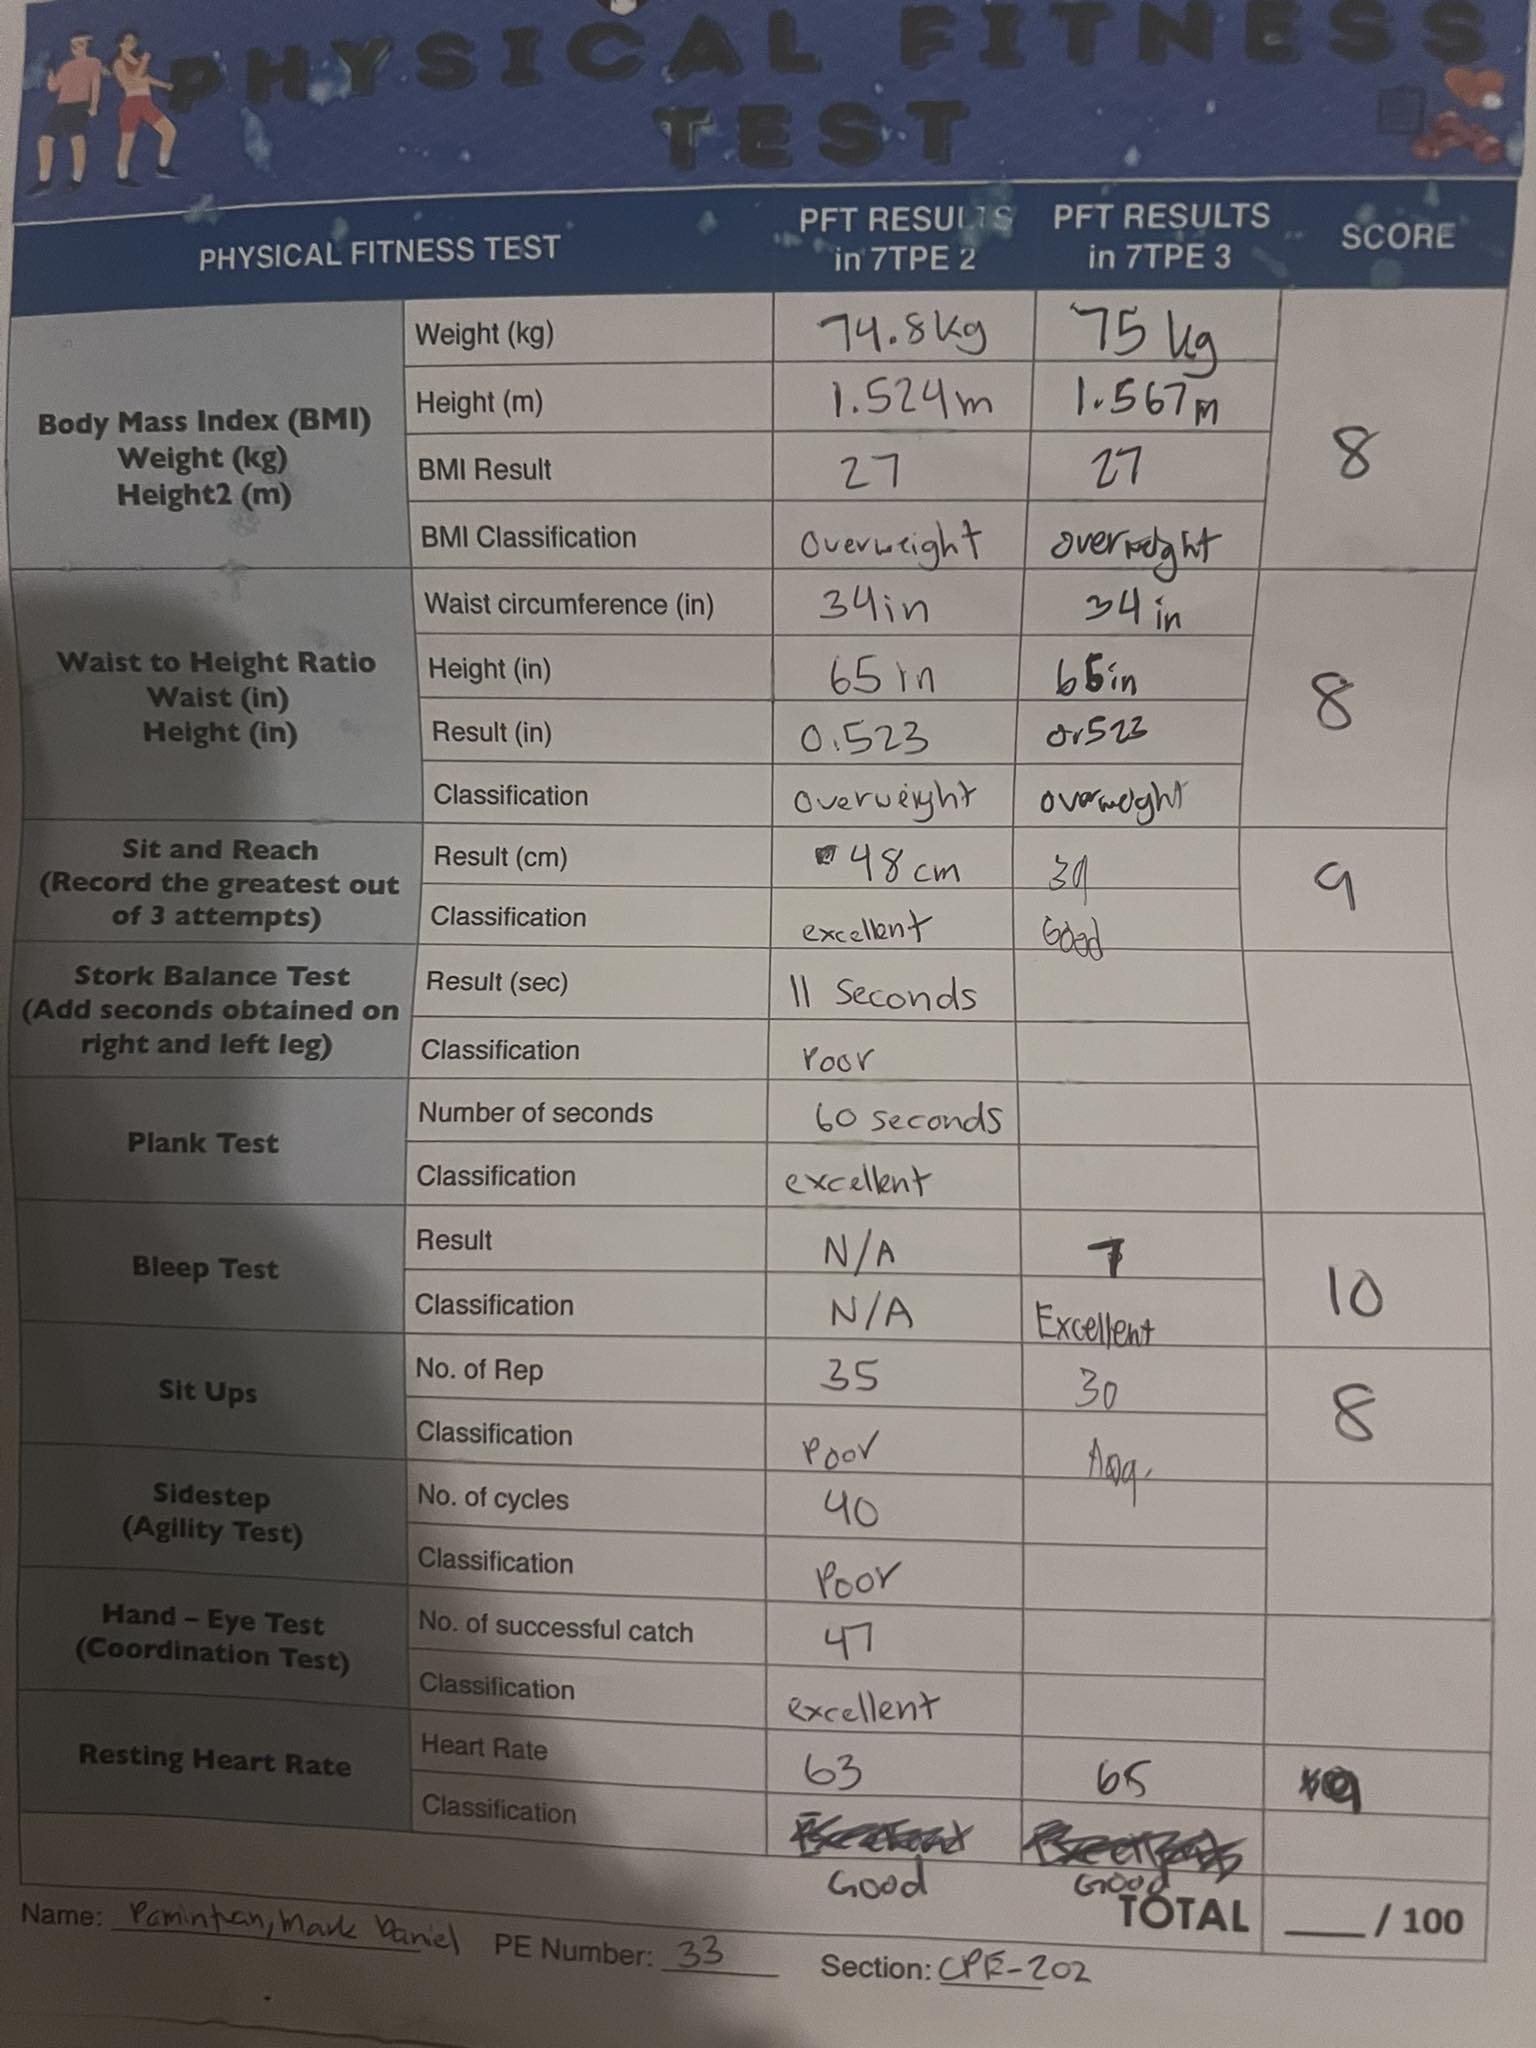 PHYSICAL FITNESS
TEST
PHYSICAL FITNESS TEST
PFT RESULTS in 7TPE 2
PFT RESULTS in 7TPE 3
SCORE
Body Mass Index (BMI)
Weight (kg)
Height2 (m)
Weight (kg) 74.8kg 75 kg
Height (m) 1.524m 1.567m
BMI Result 27 27
BMI Classification overweight overweight
8
Waist to Height Ratio
Waist (in)
Height (in)
Waist circumference (in) 34in 34 in
Height (in) 65in 65in
Result (in) 0.523 0.523
Classification overweight overweight
8
Sit and Reach
(Record the greatest out
of 3 attempts)
Result (cm) 48 cm 39
Classification excellent Good
9
Stork Balance Test
(Add seconds obtained on
right and left leg)
Result (sec) 11 Seconds
Classification Poor
Plank Test
Number of seconds 60 seconds
Classification excellent
Bleep Test
Result N/A 7
Classification N/A Excellent
10
Sit Ups
No. of Rep 35 30
Classification Poor
8
Sidestep
(Agility Test)
No. of cycles 40
Classification Poor
Hand – Eye Test
(Coordination Test)
No. of successful catch 47
Classification excellent
Resting Heart Rate
Heart Rate 63 65 9
Classification Good Good
TOTAL ____ / 100
Name: Mark Daniel PE Number: 33 Section: CPE-202